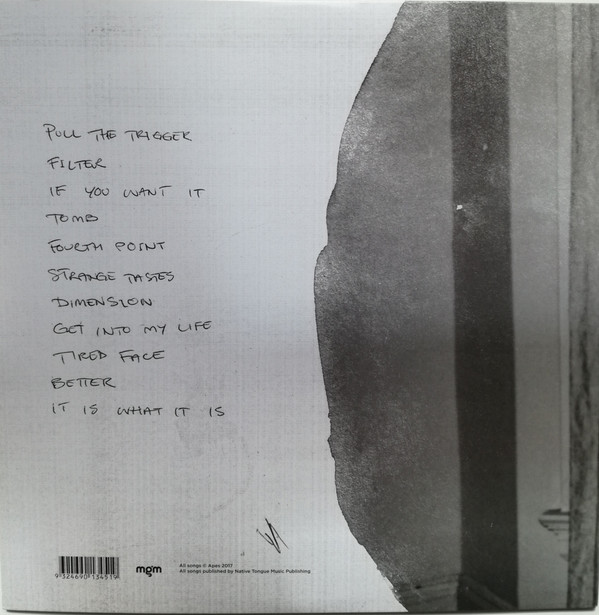 PULL THE TRIGGER
FILTER
IF YOU WANT IT
TOMB
FOURTH POINT
STRANGE TASTES
DIMENSION
GET INTO MY LIFE
TIRED FACE
BETTER
IT IS WHAT IT IS
9 324690 134519
mgm
All songs © Apes 2017
All songs published by Native Tongue Music Publishing